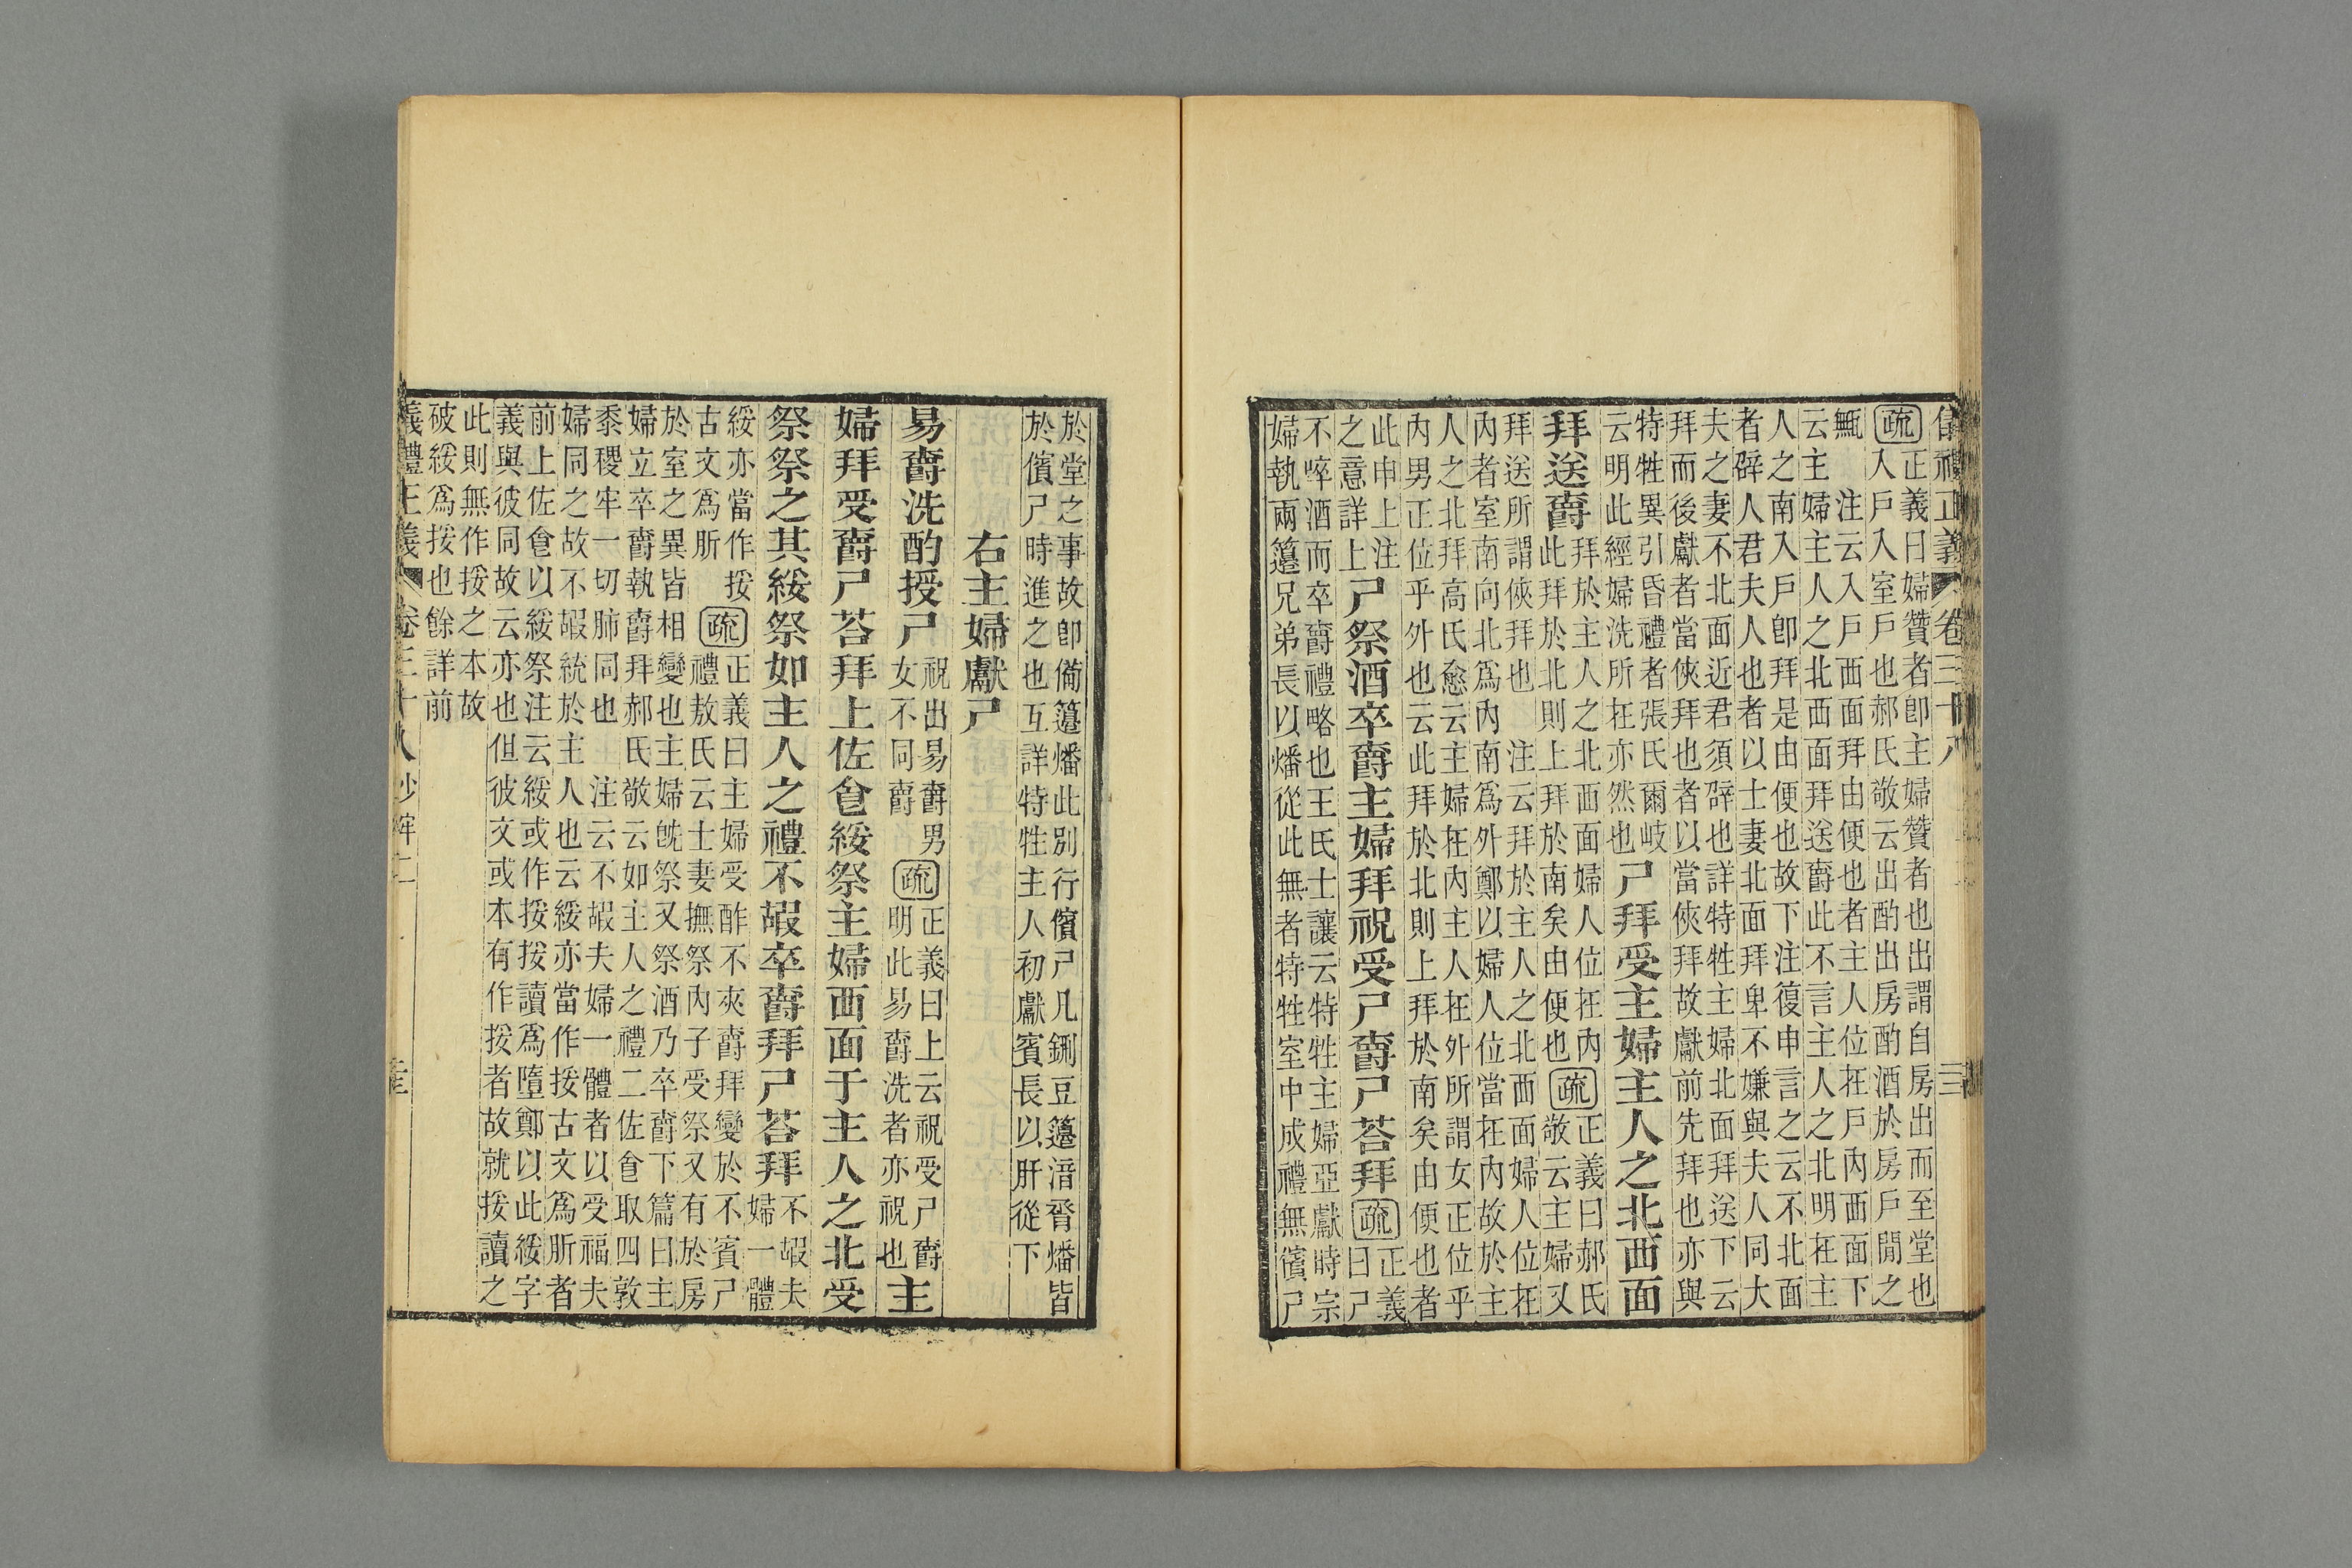 儀禮正義 卷三十八
疏正義曰婦贊者卽主婦贊者也出謂自房出而至堂也
入戶入室戶也郝氏敬云出酌出房酌酒於房戶閒之
甒　注云入戶西面拜由便也者主人位在戶內西面下
云主婦主人之北西面拜送爵此不言主人之北明在主
人之南入戶卽拜是由便也故下注復申言之云不北面
者辟人君夫人也者以士妻北面拜卑不嫌與夫人同大
夫之妻不北面近君須辟也詳特牲主婦北面拜送下云
拜而後獻者當俠拜也者以當俠拜故獻前先拜也亦與
特牲異引昏禮者張氏爾岐
云明此經婦洗所在亦然也
尸拜受主婦主人之北西面
拜送爵
拜於主人之北西面婦人位在內
此拜於北則上拜於南矣由便也
疏正義曰郝氏
敬云主婦又
拜送所謂俠拜也　注云拜於主人之北西面婦人位在
內者室南向北爲內南爲外鄭以婦人位當在內故於主
人之北拜高氏愈云主婦在內主人在外所謂女正位乎
內男正位乎外也云此拜於北則上拜於南矣由便也者
此申上注
之意詳上
尸祭酒卒爵主婦拜祝受尸爵尸荅拜
疏正義
曰尸
不啐酒而卒爵禮略也王氏士讓云特牲主婦亞獻時宗
婦執兩籩兄弟長以燔從此無者特牲室中成禮無儐尸
於堂之事故卽備籩燔此別行儐尸凡鉶豆籩湆脀燔皆
於儐尸時進之也互詳特牲主人初獻賓長以肝從下
右主婦獻尸
易爵洗酌授尸
祝出易爵男
女不同爵
疏正義曰上云祝受尸爵
明此易爵洗者亦祝也
主
婦拜受爵尸荅拜上佐食綏祭主婦西面于主人之北受
祭祭之其綏祭如主人之禮不嘏卒爵拜尸荅拜
不嘏夫
婦一體
綏亦當作挼
古文爲肵
疏正義曰主婦受酢不夾爵拜變於不賓尸
禮敖氏云士妻撫祭內子受祭又有於房
於室之異皆相變也主婦旣祭又祭酒乃卒爵下篇曰主
婦立卒爵執爵拜郝氏敬云如主人之禮二佐食取四敦
黍稷牢一切肺同也　注云不嘏夫婦一體者以受福夫
婦同之故不嘏統於主人也云綏亦當作挼古文爲肵者
前上佐食以綏祭注云綏或作挼挼讀爲墮鄭以此綏字
義與彼同故云亦也但彼文或本有作挼者故就挼讀之
此則無作挼之本故
破綏爲挼也餘詳前
義禮正義 卷三十八